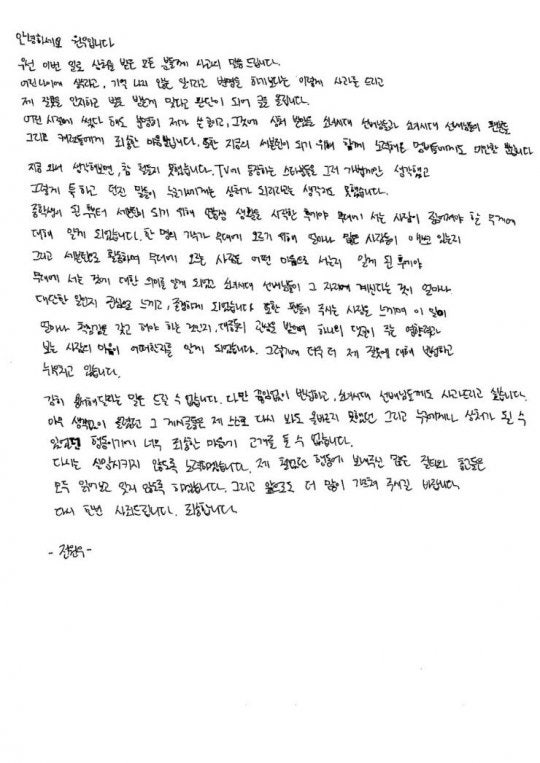 안녕하세요 원우입니다
우선 이번 일로 상처를 받은 모든 분들께 사과의 말씀 드립니다.
어린나이에 썼다고, 기억 나지 않는 일이라고 변명을 하기보다는 이렇게 사과를 드리고
제 잘못을 인지하고 벌도 받는게 맞다고 판단이 되어 글을 올립니다.
어떤 시절에 썼다 해도 분명히 제가 쓴 글이고, 그것에 상처 받았을 소녀시대 선배님들과 소녀시대 선배님들의 팬분들
그리고 캐럿들에게 죄송한 마음뿐입니다. 또한 지금의 세븐틴이 되기 위해 함께 노력해온 멤버들에게도 미안할 뿐입니다
지금 와서 생각해보면, 참 철들지 못했습니다. TV에 등장하는 스타분들을 그저 가볍게만 생각했고
그렇게 툭 하고 던진 말들이 누군가에게는 상처가 되리라고는 생각지도 못했습니다.
중학생이 된 후부터 세븐틴이 되기 위해 연습생 생활을 시작한 후에야 무대에 서는 사람이 짊어져야 할 무게에
대해 알게 되었습니다. 한 명의 가수가 무대에 오르기 위해 얼마나 많은 사람들이 애쓰고 있는지
그리고 세븐틴으로 활동하며 무대에 오르는 사람은 어떤 마음으로 서는지 알게 된 후에야
무대에 서는 것에 대한 의미를 알게 되었고 소녀시대 선배님들이 그 자리에 계신다는 것이 얼마나
대단한 일인지 진심으로 느끼고, 존경하게 되었습니다. 또한 팬들이 주시는 사랑을 느끼며 이 일이
얼마나 책임감을 갖고 해야 하는 것인지, 대중들의 관심을 받으며 하나의 댓글이 주는 영향력과
보는 사람의 마음이 어떠한지를 알게 되었습니다. 그렇기에 더욱 더 제 잘못에 대해 반성하고
뉘우치고 있습니다.
감히 용서해달라는 말은 드릴 수 없습니다. 다만 끊임없이 반성하고, 소녀시대 선배님들께도 사과드리고 싶습니다.
아무 생각없이 올렸던 그 게시글들은 제 스스로 다시 봐도 올바르지 못했던 그리고 누군에게나 상처가 될 수
있었던 행동이기에 너무 죄송한 마음에 고개를 들 수 없습니다.
다시는 실망시키지 않도록 노력하겠습니다. 제 잘못된 행동에 보내주신 많은 질타와 충고들은
모두 읽어보고 잊지 않도록 하겠습니다. 그리고 앞으로도 더 많이 가르쳐 주시길 바랍니다.
다시 한번 사죄드립니다. 죄송합니다.
- 전원우 -